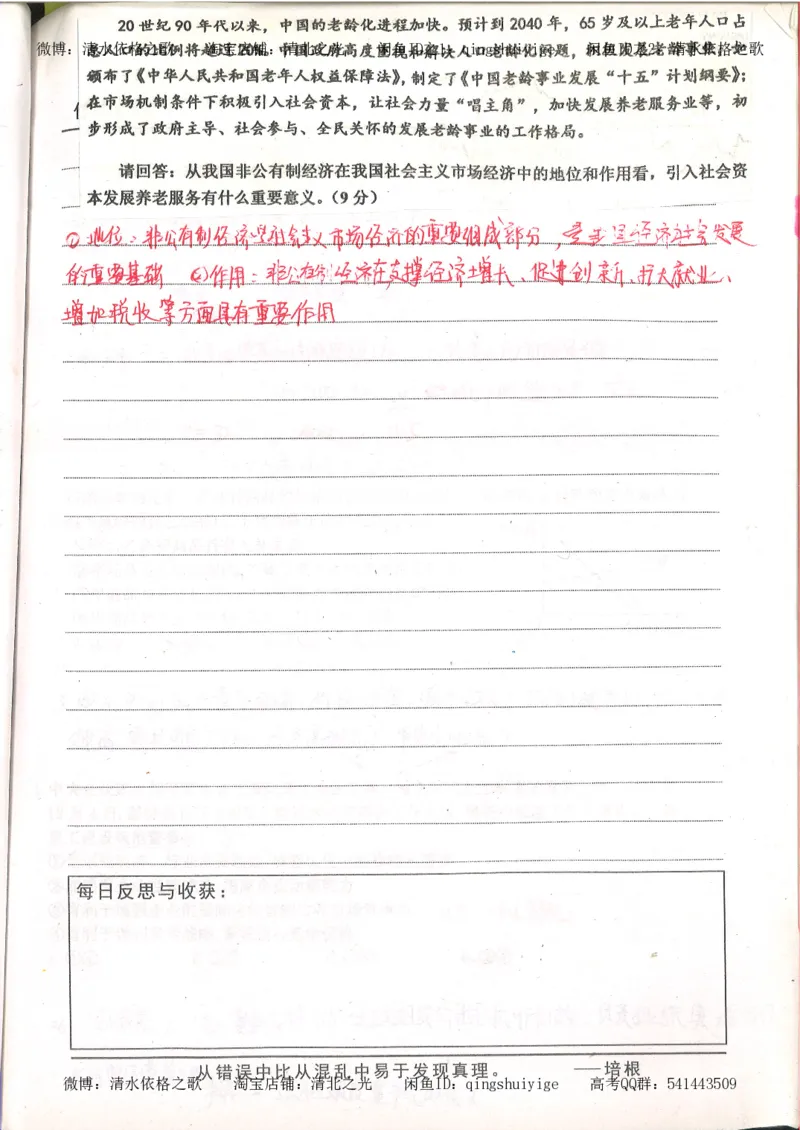 20 世纪 90 年代以来，中国的老龄化进程加快。预计到 2040 年，65 岁及以上老年人口占
微博：清水依格之歌
颁布了《中华人民共和国老年人权益保障法》，制定了《中国老龄事业发展“十五”计划纲要》；
在市场机制条件下积极引入社会资本，让社会力量“唱主角”，加快发展养老服务业等，初
步形成了政府主导、社会参与、全民关怀的发展老龄事业的工作格局。
请回答：从我国非公有制经济在我国社会主义市场经济中的地位和作用看，引入社会资
本发展养老服务有什么重要意义。（9 分）
①地位：非公有制经济是社会主义市场经济的重要组成部分，是我国经济社会发展
的重要基础 ②作用：非公有制经济在支撑经济增长、促进创新、扩大就业、
增加税收等方面具有重要作用
每日反思与收获：
从错误中比从混乱中易于发现真理。 ——培根
微博：清水依格之歌 淘宝店铺：清北之光 闲鱼ID：qingshuiyige 高考QQ群：541443509